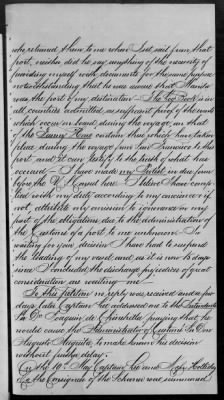 who returned them to me when I set sail from that
port, neither did he say anything of the necessity of
providing myself with documents for the same purpose
notwithstanding that he was aware that Manila
was the port of my destination - The Log Book is in
all countries admitted as sufficient proof of the events
which occur on board during the voyage, in that
of the Fanny Hare contain that which have taken
place during the voyage from San Francisco to this
port and it can testify to the truth of what has
occurred - I have made my Protest in due form
before the U.S. Consul here. I believe I have comp
lied with my duty according to my ignorance of
not, attribute to my omission to ignorance on my
part of the obligations due to the administration of
the Customs of a port to me unknown. In
waiting for your decision I have had to suspend
the lading of my vessel and as it is now 15 days
since I concluded the discharge prejudices of great
consideration are waiting me -
To this petition no reply was received and a few
days later Captain Lee addressed one to the Intendente
Dn. Joaquin de praying that he
would cause the Administrator of Customs Dn. Jose
Augusto to make known his decision
without further delay.
On the May Captain Lee and Holliday
& Co the consignees of the Schooner road summoned